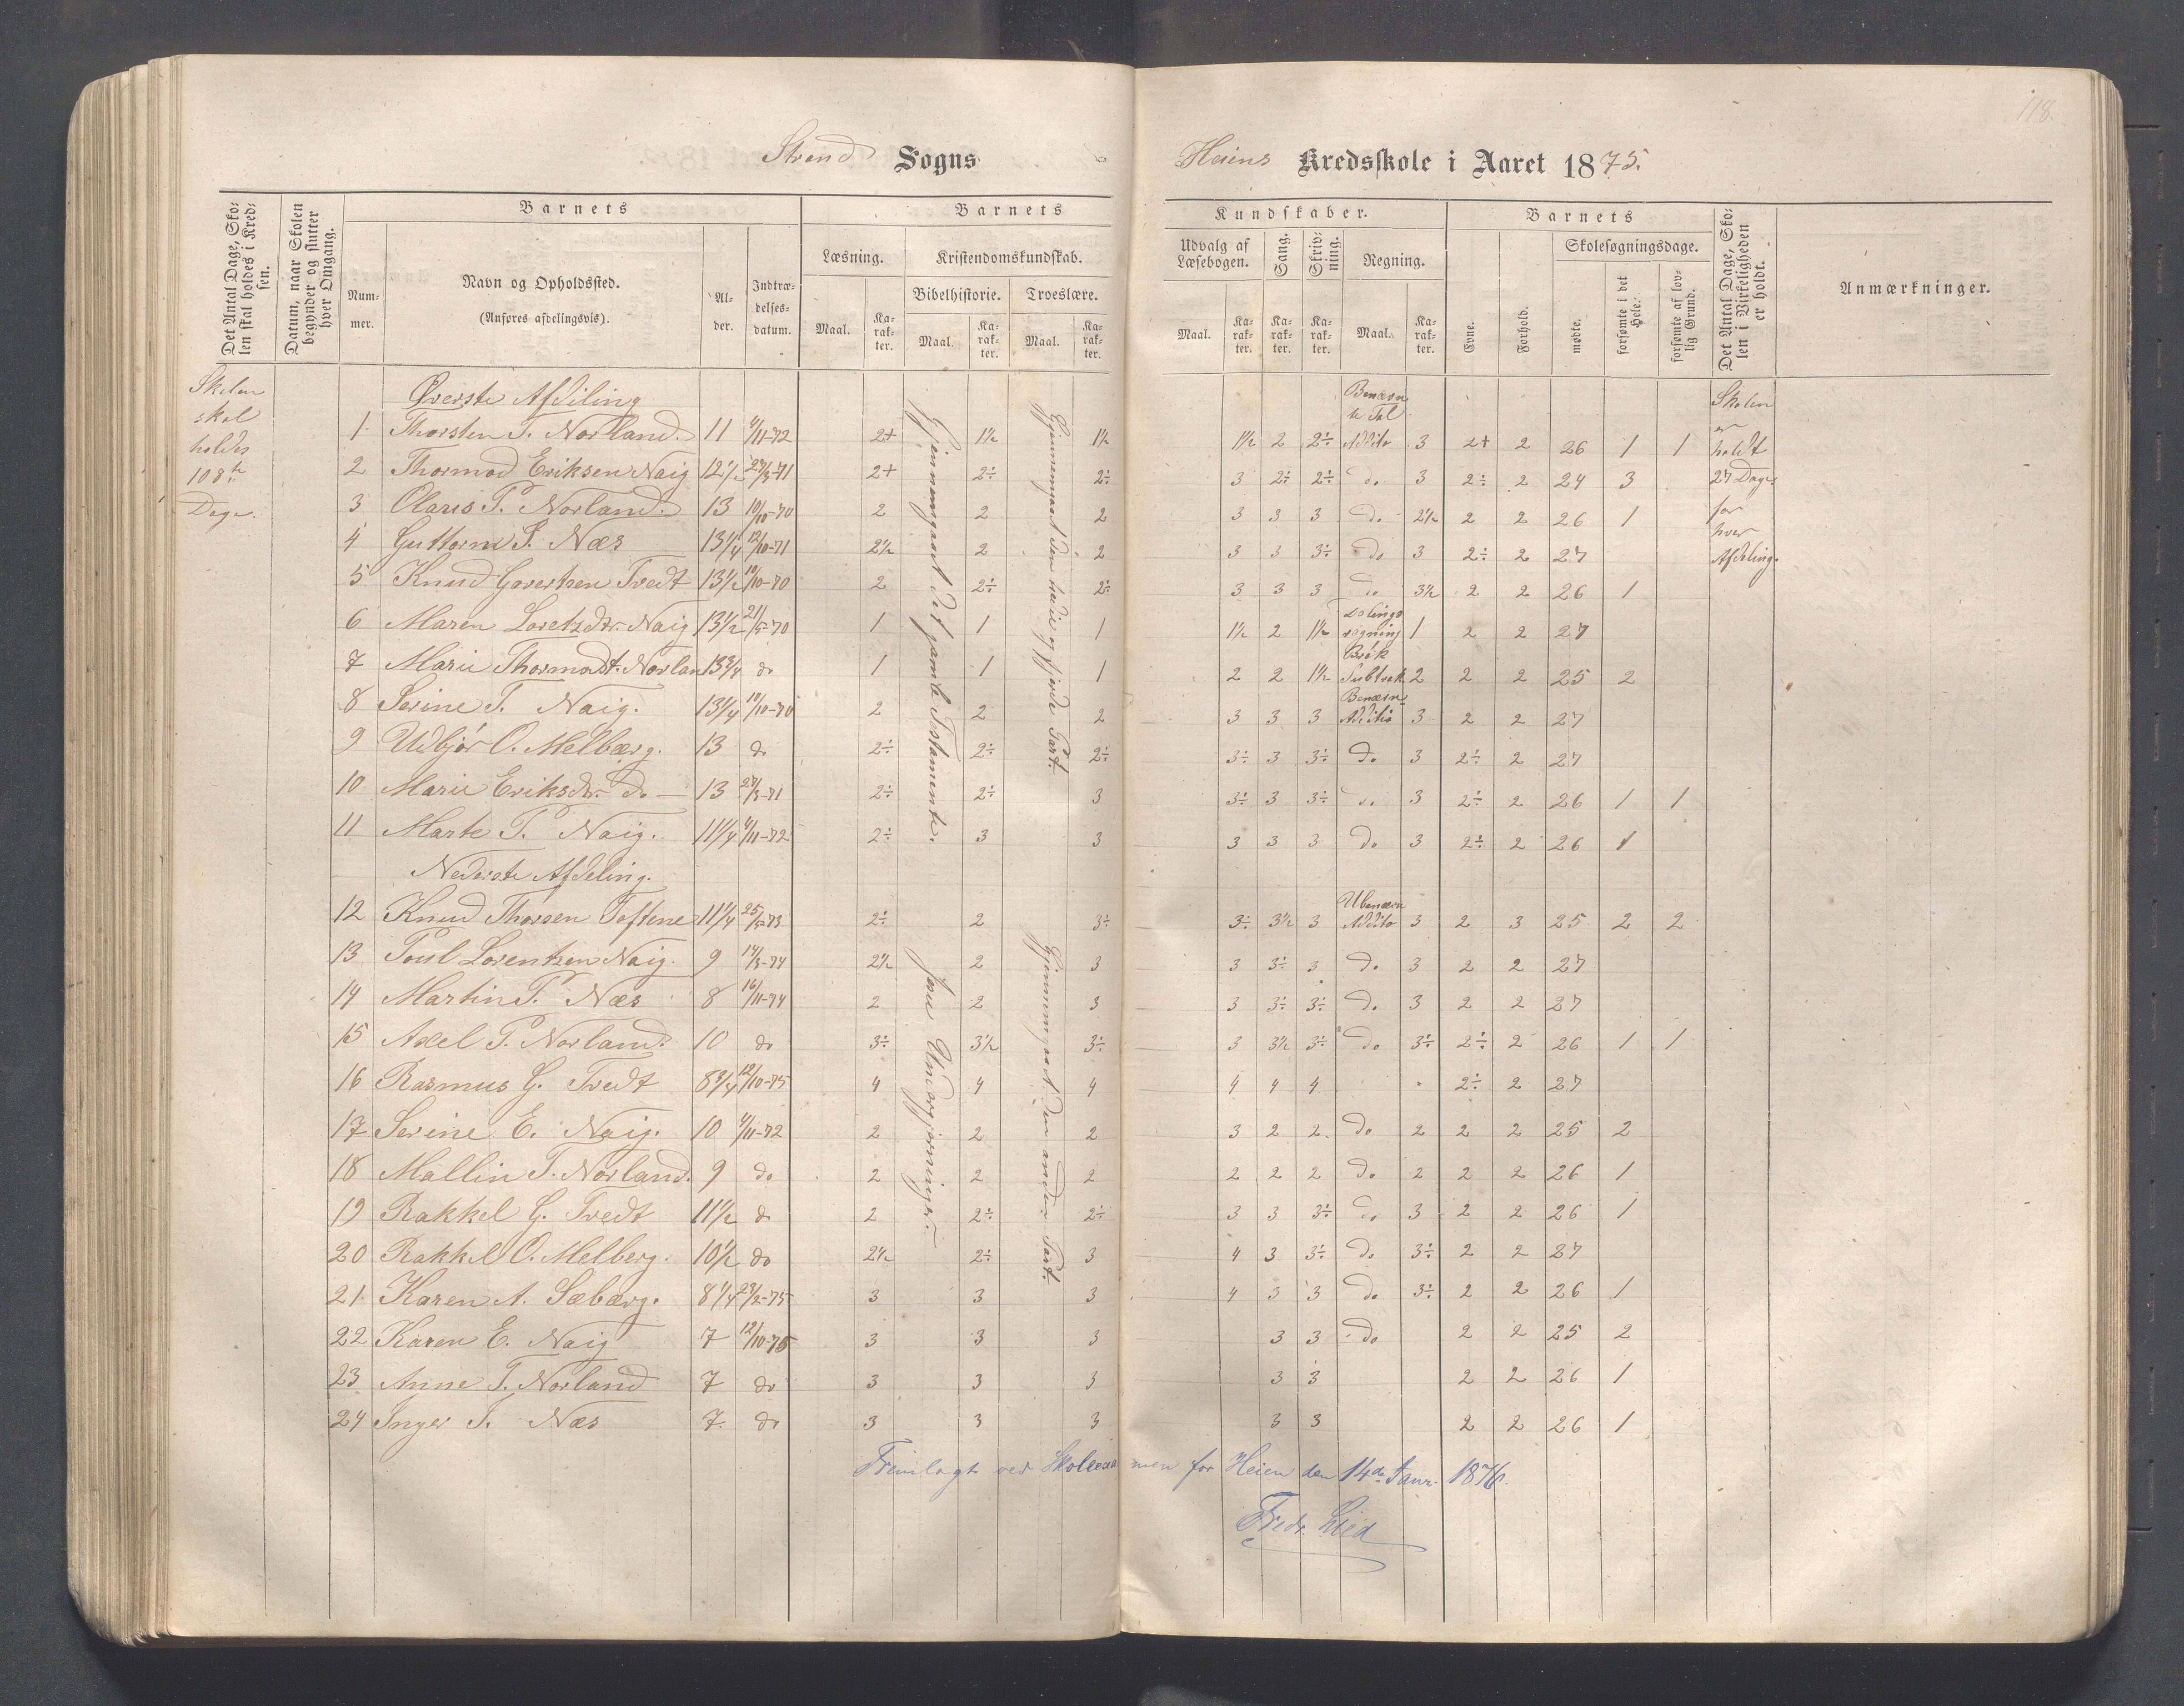 118.
Strand Sogns
Heiens Kredsskole i Aaret 1875.
Det Antal Dage, Skolen skal holdes i Kredsen.
Datum, naar Skolen begynder og slutter hver Omgang.
Barnets
Nummer.
Navn og Opholdssted.
(Anføres afdelingsvis).
Alder.
Indtrædelsesdatum.
Barnets Kundskaber.
Læsning.
Maal. Karakter.
Kristendomskundskab.
Bibelhistorie. Troeslære.
Maal. Karakter. Maal. Karakter.
Udvalg af Læsebogen.
Maal. Karakter.
Sang. Karakter.
Skrivning. Karakter.
Regning.
Maal. Karakter.
Barnets
Evne. Forhold.
Skolesøgningsdage.
mødte. forsømte i det Hele. forsømte af lovlig Grund.
Det Antal Dage, Skolen i Virkeligheden er holdt.
Anmærkninger.
Skolen skal holdes 108te Dage.
Skolen er holdt 27 Dage for hver Afdeling.
Øverste Afdeling
Gjennemgaaet det gamle Testamente.
Gjennemgaaet den tredie og fjerde Part.
1 Thorsten T. Norland. 11 4/11-72 2+ 1½ 1½ 1½ 2 2÷ Benævnte Tal Additio 3 2+ 2 26 1 1
2 Thormod Eriksen Naig 12½ 27/3-71 2+ 2÷ 2÷ 3 2÷ 2÷ do 3 2÷ 2 24 3
3 Olaus P. Norland. 13 10/10-70 2 2 2 3 3 3 do 2½ 2 2 26 1
4 Guttorm P. Næs 13¼ 12/10-71 2½ 2 2 3 3 3÷ do 3 2÷ 2 27
5 Knud Govertsen Tvedt 13½ 10/10-70 2 2÷ 2÷ 3 3 3 do 3½ 2 2 26 1
6 Maren Loretzdtr. Naig 13½ 21/5-70 1 1 1 1½ 2 1½ regning 1 2 2 27
7 Marie Thormodst. Norlan 13¾ do 1 1 1 2 2 1½ Brøk Subtrak 2 2 2 25 2
8 Serine T. Naig. 13¼ 10/10-70 2 2 2 3 3 3 Benævn. Additio 3 2 2 27
9 Udbjør O. Melbærg. 13 do 2÷ 2÷ 2÷ 3÷ 3 3÷ do 3 2÷ 2 27
10 Marie Eriksdtr. do 13 27/3-71 2÷ 2÷ 3 3÷ 3 3÷ do 3 2÷ 2 26 1 1
11 Marte P. Naig. 11¼ 4/11-72 2÷ 3 3 3 3 3 do 3 2÷ 2 26 1
Nederste Afdeling.
Jesu Undergjerninger.
Gjennemgaaet den anden Part.
12 Knud Thorsen Toftene 11¼ 25/5-73 2÷ 2 3÷ 3÷ 3½ 3 Ubenævn Additio 3 2 3 25 2 2
13 Poul Lorentzen Naig. 9 14/3-74 2½ 2 3 3 3÷ 3 do 3 2 2 27
14 Martin P. Næs 8 16/11-74 2 2 3 3 3÷ 3÷ do 3 2 2 27
15 Axel P. Norland. 10 do 3÷ 3½ 3÷ 3 3½ 3÷ do 3÷ 2÷ 2 26 1 1
16 Rasmus G. Tvedt 8¾ 12/10-75 4 4 4 4 4 4 2÷ 2 27
17 Serine E. Naig. 10 4/11-72 2 2 2 3 2 2 do 2 2 2 25 2
18 Mallin T. Norland. 9 do 2 2 2 2 2 2 do 2 2 2 26 1
19 Rakkel G. Tvedt 11½ do 2 2÷ 2÷ 3 3 3÷ do 3 2 2 26 1
20 Rakkel O. Melberg. 10½ do 2½ 2÷ 3 4 3 3÷ do 3÷ 2 2 27
21 Karen A. Sæbærg. 8¼ 23/2-75 3 3 3 4 3 3 do 3÷ 2 2 26 1
22 Karen E. Naig 7 12/10-75 3 3 3 3 3 do 2 2 25 2
23 Anne T. Norland 7 do 3 3 3 3 3 2 2 26 1
24 Inger T. Næs 7. do 3 3 3 3 3 2 2 26 1
Fremlagt ved Skoleexamen for Heien den 14de Janr. 1876.
Fredr.